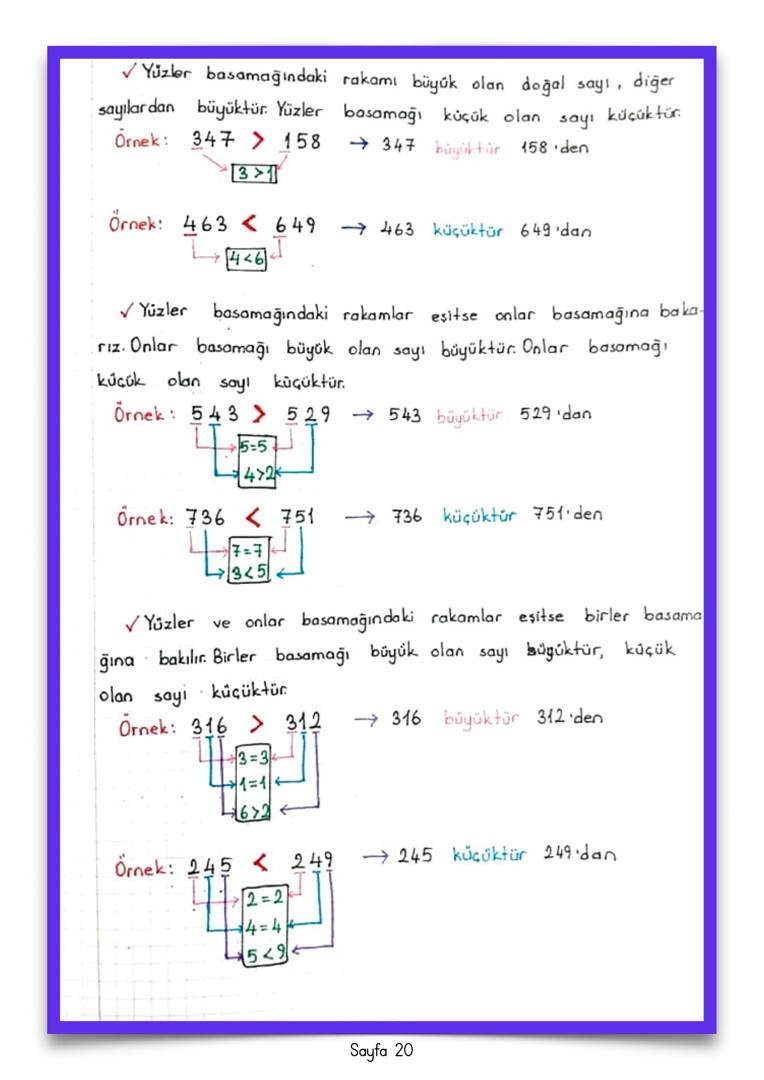 ✓ Yüzler basamağındaki rakamı büyük olan doğal sayı, diğer
sayılardan büyüktür. Yüzler basamağı küçük olan sayı küçüktür.
Örnek: 347 > 158 → 347 büyüktür 158'den
3>1
Örnek: 463 < 649 → 463 küçüktür 649'dan
4<6
✓ Yüzler basamağındaki rakamlar eşitse onlar basamağına baka-
rız. Onlar basamağı büyük olan sayı büyüktür. Onlar basamağı
küçük olan sayı küçüktür.
Örnek: 543 > 529 → 543 büyüktür 529'dan
5=5
4>2
Örnek: 736 < 751 → 736 küçüktür 751'den
7=7
3<5
✓ Yüzler ve onlar basamağındaki rakamlar eşitse birler basama
ğına bakılır. Birler basamağı büyük olan sayı büyüktür, küçük
olan sayi küçüktür.
Örnek: 316 > 312 → 316 büyüktür 312'den
3=3
1=1
6>2
Örnek: 245 < 249 → 245 küçüktür 249'dan
2=2
4=4
5<9
Sayfa 20